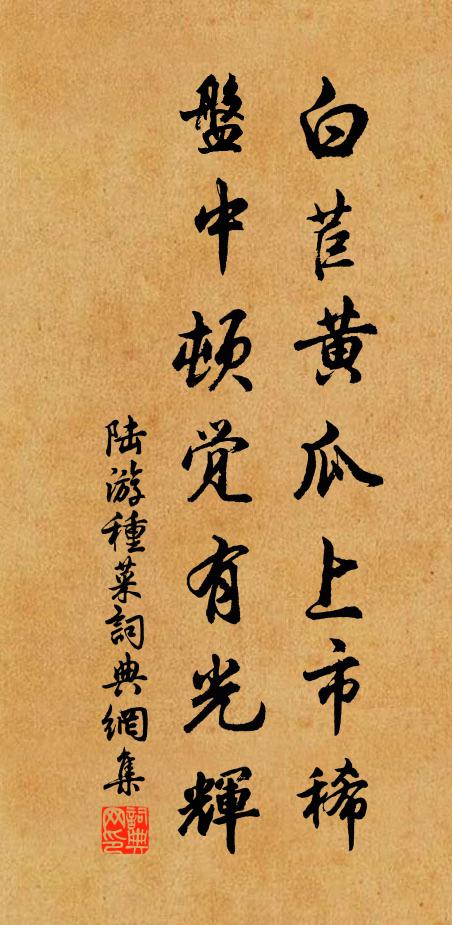 白苣黄瓜上市稀
盤中頓觉有光輝
陆游種菜詞典網集
詞典网印